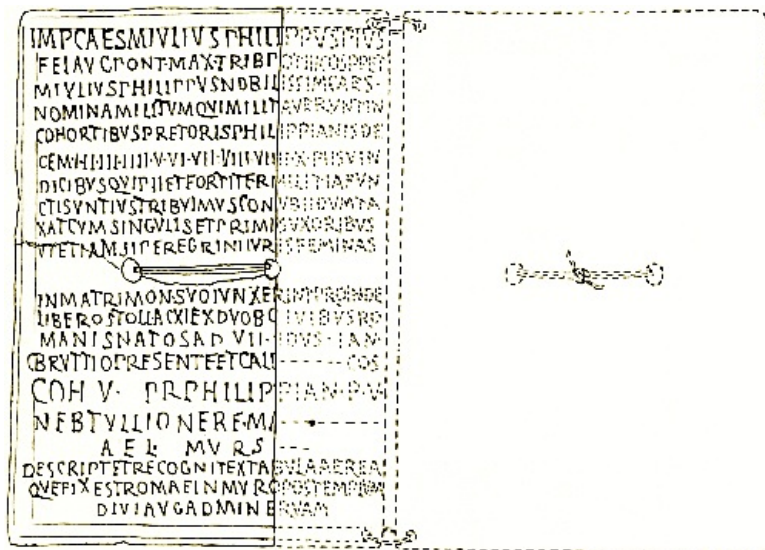 IMPCAESMIVLIVSPHILIPPVSPIVS
FELAVGPONT·MAX·TRIBP
MIVLIVSPHILIPPVSNOBILISSIMCAES·
NOMINAMILITVMQVIMILITAVERVNTIN
COHORTIBVSPRETORISPHILIPPIANISDE
CEM·I·II·III·IIII·V·VI·VII·VIII·VIIII·X·PIISVIN
DICIBVSQVIPIIETFORTITERMILITIAFVN
CTISVNTIVSTRIBVIMVSCONVBIIDVMTA
XATCVMSINGVLISETPRIMISVXORIBVS
VTETIAMSIPEREGRINIIVRISFEMINAS
INMATRIMONSVOIVNXERINTPROINDE
LIBEROSTOLLACXIEXDVOBCIVIBVSRO
MANISNATOSADVII·IDVS·IAN·
CBRVTTIOPRESENTEETCALL COS
COH V· PRPHILIPPIAN·P·V·
NEBTVLLIONEREMA
AEL· MVRS
DESCRIPTETRECOGNITEXTABVLAAEREA
QVEFIXESTROMAEINMVROPOSTEMPLVM
DIVIAVGADMINERVAM